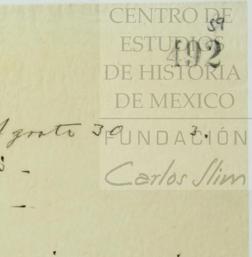 CENTRO DE
ESTUDIOS
59
492
DE HISTORIA
DE MEXICO
FUNDACIÓN
Agosto 30 3.
Carlos Slim